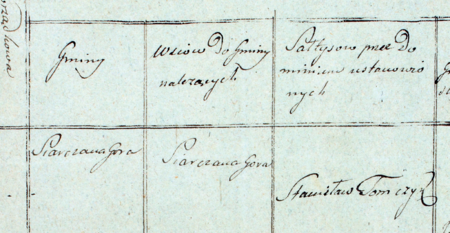 Gminy
wsiów do Gminy
należących
Sołtysow prze do
minium ustanowio
nych
Siarczana Gora
Siarczana Gora
Stanisław Tomczyk